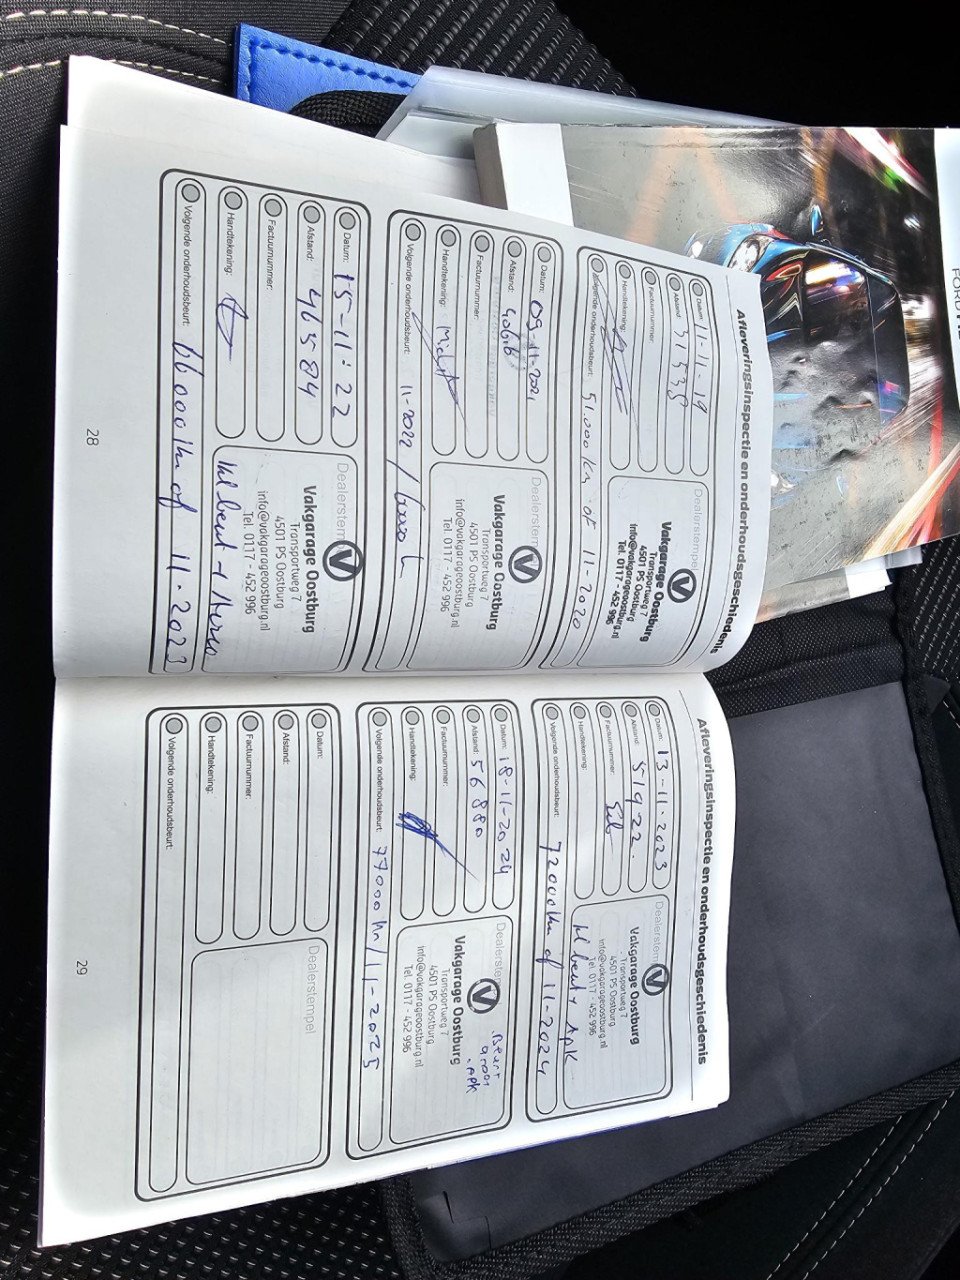 Afleveringsinspectie en onderhoudsgeschiedenis
Datum: 11-11-19
Afstand: 31535
Factuurnummer:
Handtekening:
Volgende onderhoudsbeurt: 51.000 km of 11-2020
Dealerstempel
Vakgarage Oostburg
Transportweg 7
4501 PS Oostburg
info@vakgarageoostburg.nl
Tel. 0117 - 452 996
Datum: 09-11-2021
Afstand:
Factuurnummer:
Handtekening:
Volgende onderhoudsbeurt: 11-2022 /
Dealerstempel
Vakgarage Oostburg
Transportweg 7
4501 PS Oostburg
info@vakgarageoostburg.nl
Tel. 0117 - 452 996
Datum: 15-11-22
Afstand: 46584
Factuurnummer:
Handtekening:
Volgende onderhoudsbeurt: 66000km of 11-2023
Dealerstempel
Vakgarage Oostburg
Transportweg 7
4501 PS Oostburg
info@vakgarageoostburg.nl
Tel. 0117 - 452 996
kl beurt +
28
Afleveringsinspectie en onderhoudsgeschiedenis
Datum: 13-11-2023
Afstand: 51922.
Factuurnummer:
Handtekening:
Volgende onderhoudsbeurt: 72000km of 11-2024
Dealerstempel
Vakgarage Oostburg
Transportweg 7
4501 PS Oostburg
info@vakgarageoostburg.nl
Tel. 0117 - 452 996
kl beurt + APK
Datum: 18-11-2024
Afstand: 56880
Factuurnummer:
Handtekening:
Volgende onderhoudsbeurt: 77000km/11-2025
Dealerstempel
Vakgarage Oostburg
Transportweg 7
4501 PS Oostburg
info@vakgarageoostburg.nl
Tel. 0117 - 452 996
.Beurt
groot
.APK
Datum:
Afstand:
Factuurnummer:
Handtekening:
Volgende onderhoudsbeurt:
Dealerstempel
29